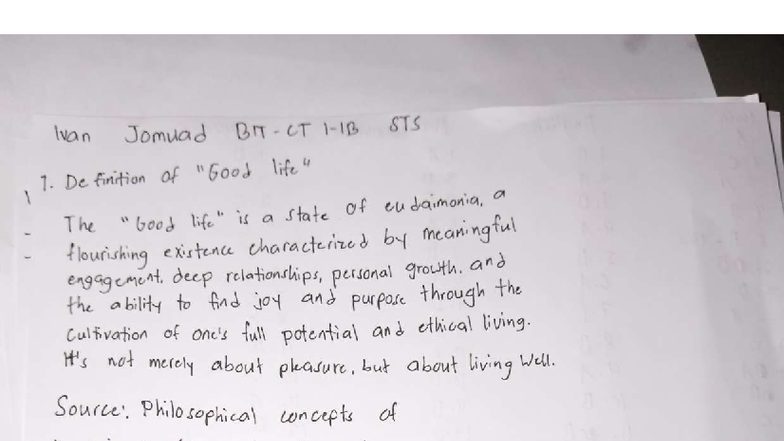 Ivan Jomuad BIT-CT 1-1B STS
1. Definition of "Good life"
The "Good life" is a state of eudaimonia, a
flourishing existence characterized by meaningful
engagement, deep relationships, personal growth, and
the ability to find joy and purpose through the
Cultivation of one's full potential and ethical living.
It's not merely about pleasure, but about living well.
Source: Philosophical concepts of